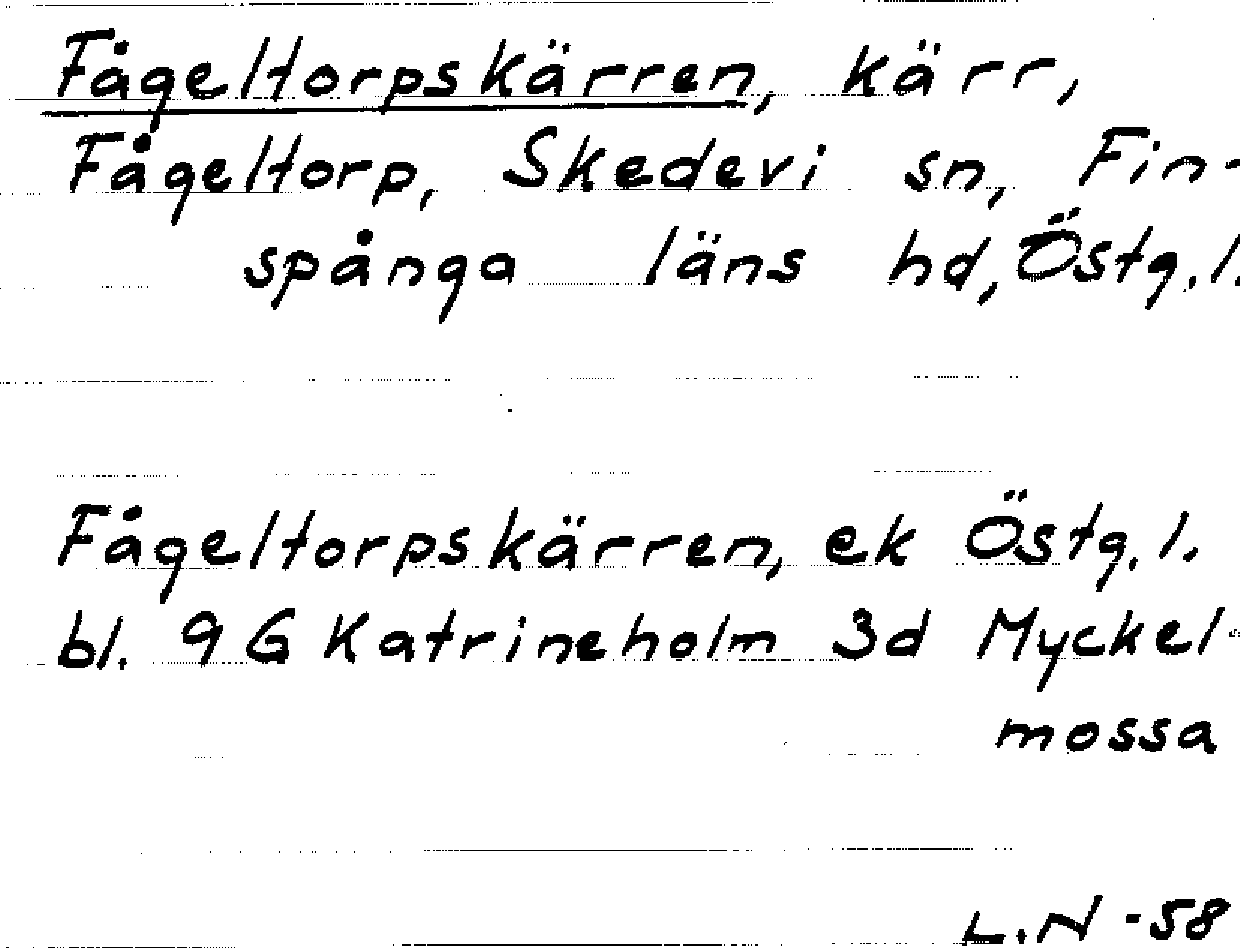 Fågeltorpskärren, kärr,
Fågeltorp, Skedevi sn, Fin-
spånga läns hd, Östg.l.
Fågeltorpskärren, ek Östg.l.
bl. 9G Katrineholm 3d Myckel-
mossa
L.N -58